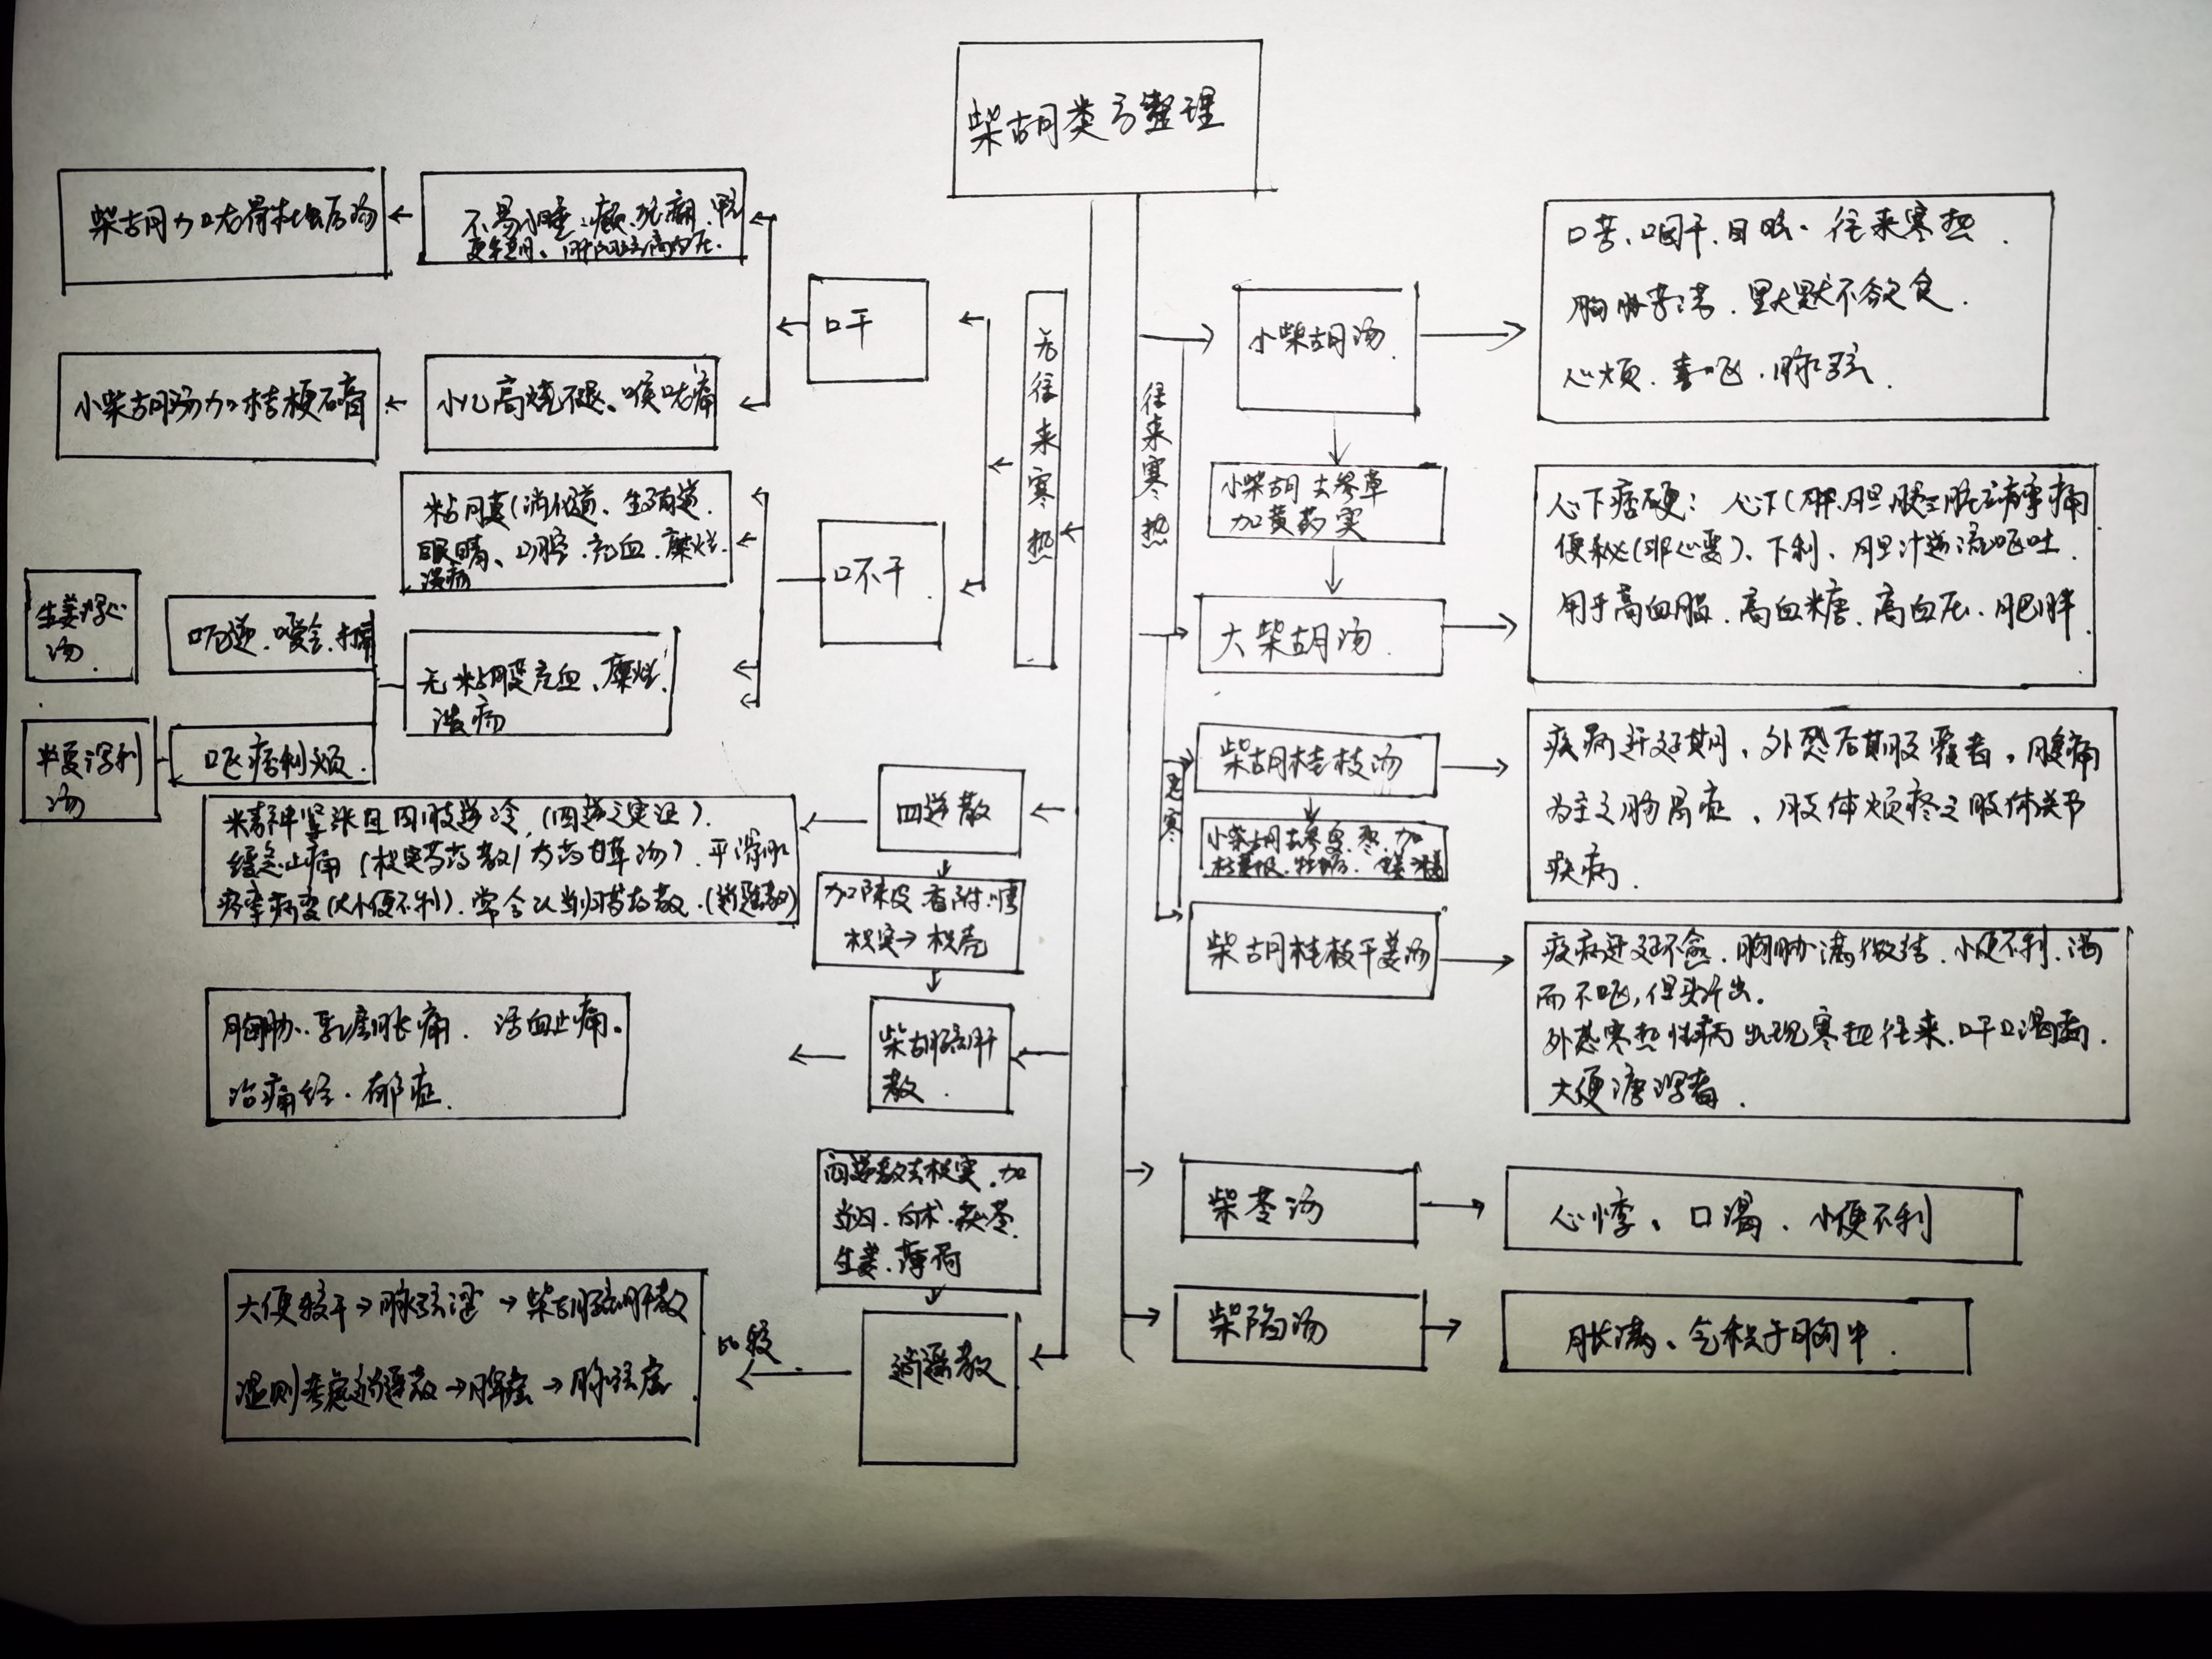 柴胡类方整理
柴胡加龙骨牡蛎汤
不易入睡、癫
更年期、肝阳上亢高血压.
小柴胡汤加桔梗石膏
小儿高烧不退、喉咙痛
口干
无往来寒热
粘膜(消化道、生殖道、
眼睛、口腔、充血、糜烂、
溃疡
口不干
生姜泻心
汤
呃逆、嗳食、
无粘膜充血、糜烂
溃疡
半夏泻利
汤
呕痞利烦.
四逆散
精神紧张且四肢逆冷,(四逆之实证).
缓急止痛(枳实芍药散/芍药甘草汤).平滑肌
痉挛病变(大小便不利).常合以当归芍药散.(逍遥散)
加陈皮 香附
枳实→枳壳
柴胡疏肝
散.
胸胁、乳房胀痛.活血止痛。
治痛经.郁症.
四逆散去枳实.加
当归.白术.茯苓.
生姜.薄荷
逍遥散
比较
大便较干→脉弦涩→柴胡疏肝散
湿则考虑逍遥散→脾虚→脉弦虚
往来寒热
小柴胡汤.
口苦、咽干、目眩、往来寒热.
胸胁苦满.默默不欲食.
心烦.喜呕.脉弦.
小柴胡去参草
加黄药实
大柴胡汤.
心下痞硬: 心下(胖、胆、胰
便秘(非必要)、下利、胆汁逆流呕吐.
用于高血脂.高血糖.高血压.肥胖
柴胡桂枝汤
疾病迁延期、外感后期服
为主之肠胃症、肢体烦疼之肢体关节
疾病.
小柴胡去参夏、枣、加
柴胡桂枝干姜汤
疾病迁延不愈.胸胁满微结.小便不利.渴
而不呕,但头汗出.
外感寒热性病出现寒热往来.口干口渴
大便溏泻者.
柴苓汤
心悸、口渴、小便不利
柴陷汤
胀满、气积于胸中.